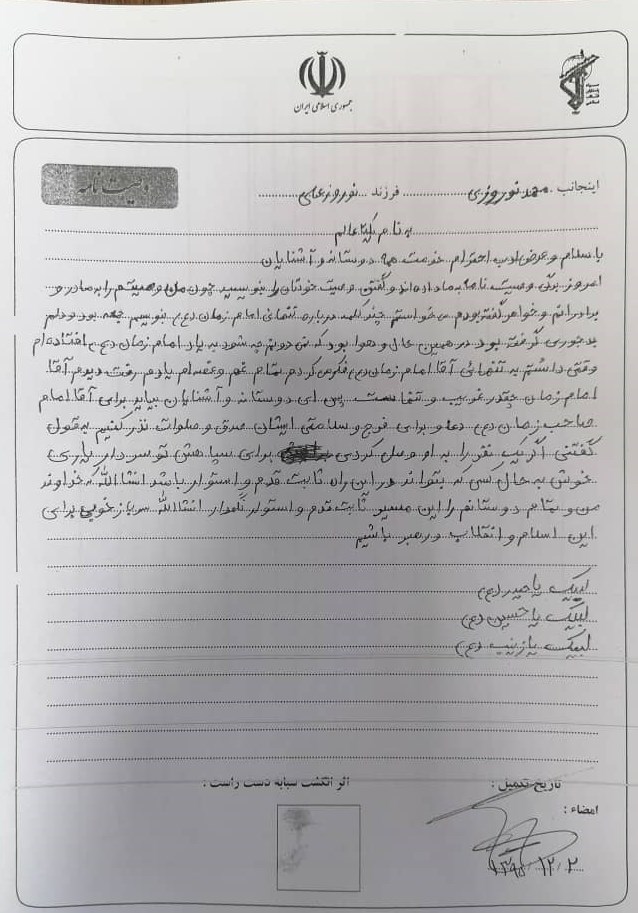 جمهوری اسلامی ایران
وصیت نامه
اینجانب محمد نوروزی فرزند نوروزعلی
به نام یکتا عالم
با سلام و عرض ادب احترام خدمت همه دوستان و آشنایان
امروز برگی وصیت نامه به ما داده اند و گفتن وصیت خودتان را بنویسید چون من وصیتم را به مادر و
برادرانم و خواهر گفته بودم می خواستم چند کلمه درباره تنهائی امام زمان (عج) بنویسم جمعه بود و دلم
بدجوری گرفته بود در همین حال و هوا بود که نمی دونم چه شود به یاد امام زمان (عج) افتاده ام
وقتی داشتم به تنهائی آقا امام زمان (عج) فکر می کردم تمام غم و غصه ام یادم رفت دیدم آقا
امام زمان چقدر غریب و تنهاست پس ای دوستان و آشنایان بیاید برای آقا امام
صاحب زمان (عج) دعا و برای فرج و سلامتی ایشان صدق و صلوات نذر کنیم به قول
گفتنی اگر یک نفر را به او وصل کردی برای سپاهش تو سردار یاری
خوش به حال کسی که بتواند در این راه ثابت قدم و استوار باشد انشاالله که خداوند
من و تمام دوستانم را این مسیر ثابت قدم و استوار نگهدار انشاالله سرباز خوبی برای
این اسلام و انقلاب و رهبر باشیم
لبیک یا حیدر (ع)
لبیک یا حسین (ع)
لبیک یا زینب (س)
تاریخ تکمیل : اثر انگشت سبابه دست راست :
امضاء :